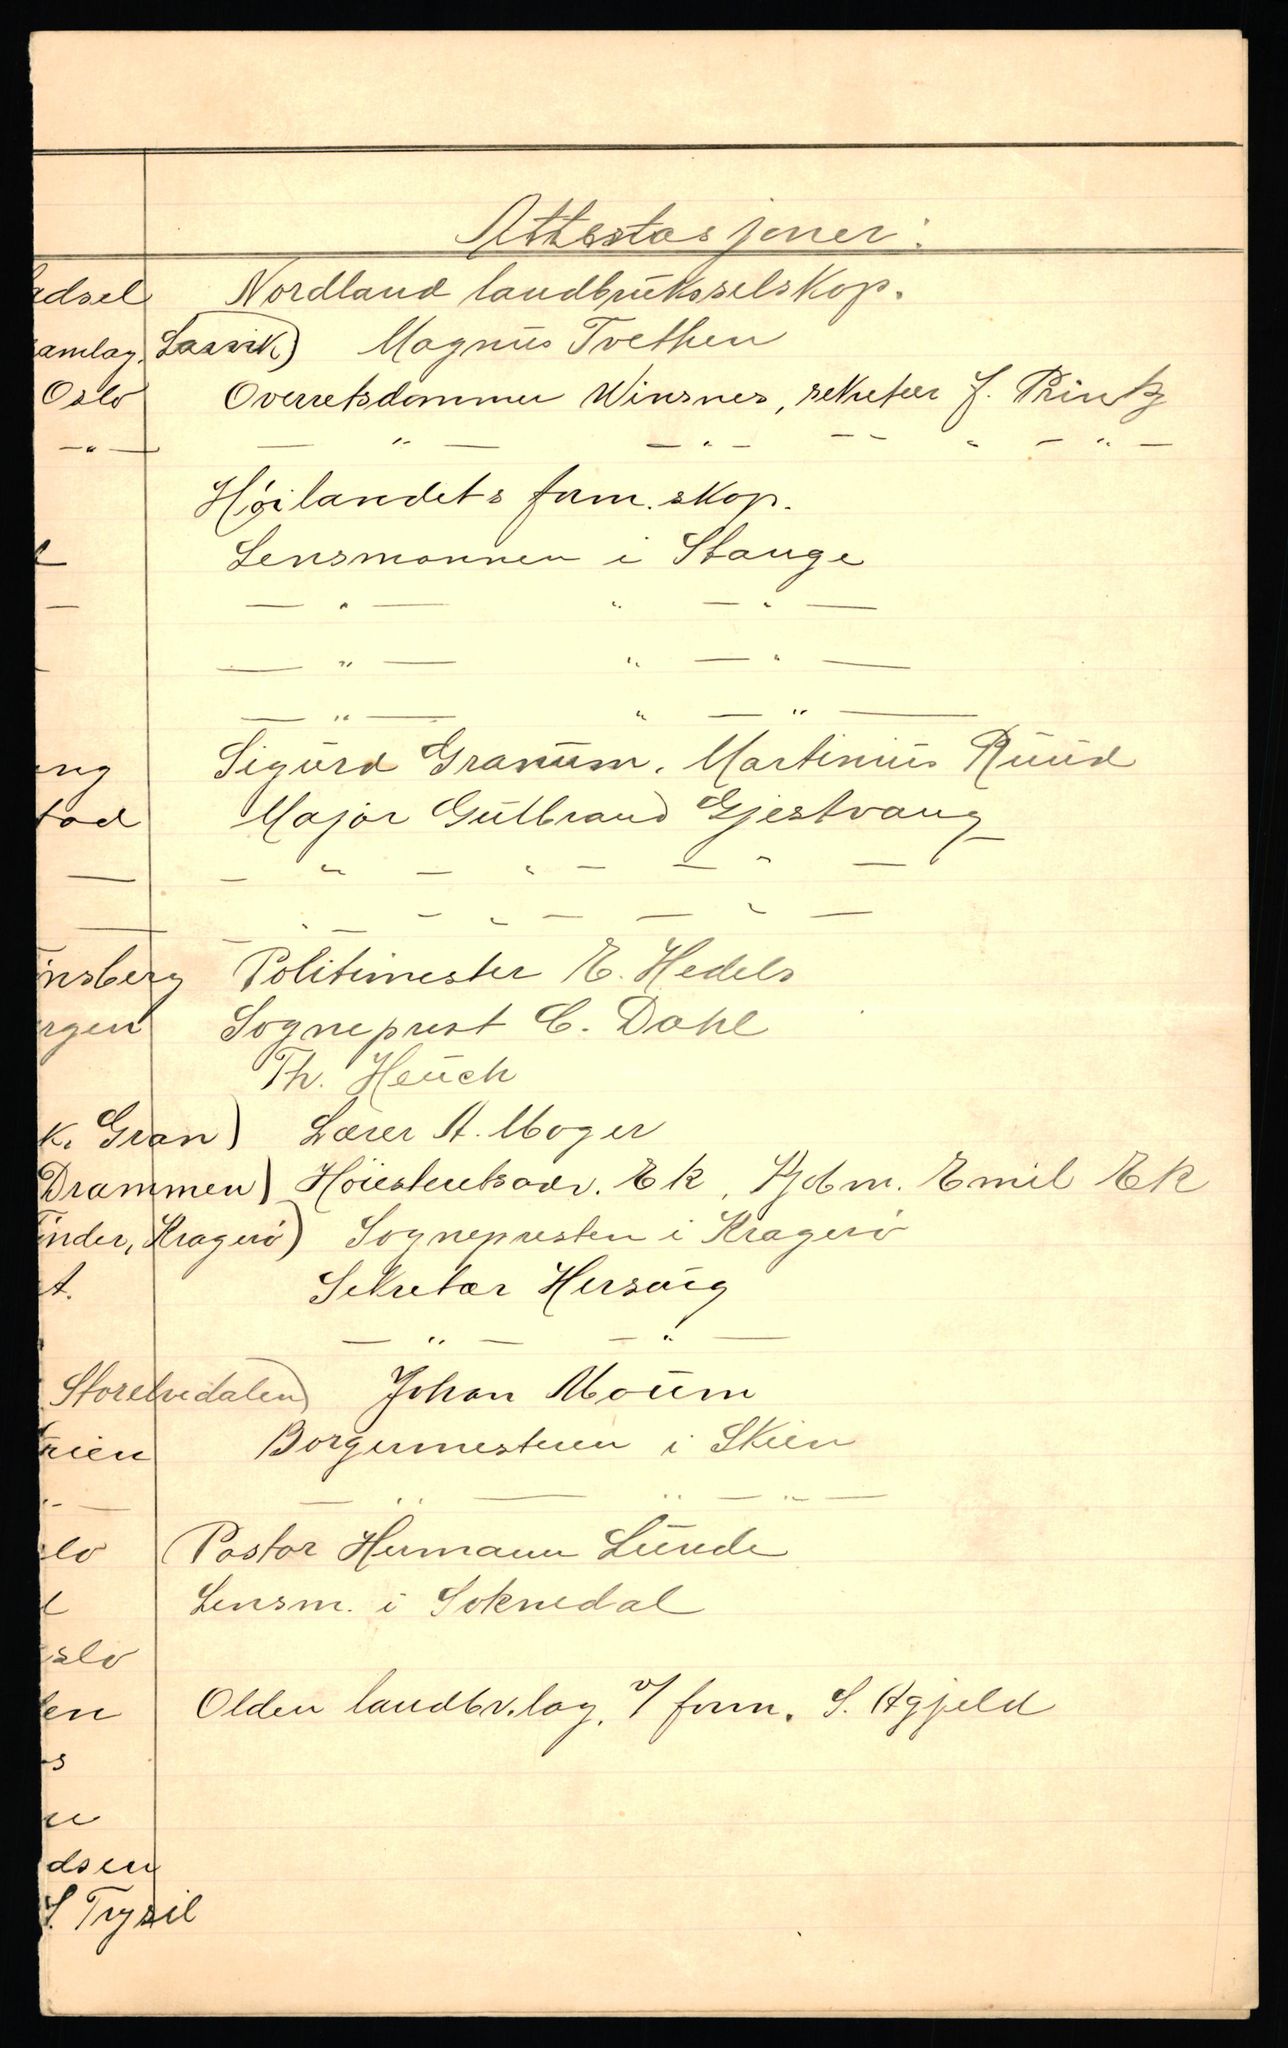 Attestasjoner:
adsel Nordland landbruksselskap.
amlag, Larvik) Magnus Tvethen
Oslo Overretsdommer Winsnes, sekretær J. Printz
—"— — " — — " — — - " — " —
Høilandets form.skap.
Lensmannen i Stange
— — " — " — " —
— " — " — " —
— " — " — " —
ang Sigurd Granum. Martinius Ruud
tad Major Gulbrand Gjestvang
— — " — " — — " —
— — " — " — — " —
ønsberg Politimester E. Hedels
rgen Sogneprest C. Dahl
Th. Heuch
k. Gran) Lærer A. Moger
Drammen) Høiesteretsadv. Ek, Kjøbm. Emil Ek
inder, Kragerø) Sognepresten i Kragerø
t. Sekretær Hersoug
— " — — " —
Storelvedalen) Johan Moum
rien Borgermesteren i Skien
"— — " — " — " —
slo Pastor Hermann Lunde
l Lensm. i Soknedal
slo
en Olden landbr.lag, v/ form. S. Agjeld
s
n
dsen
S. Trysil